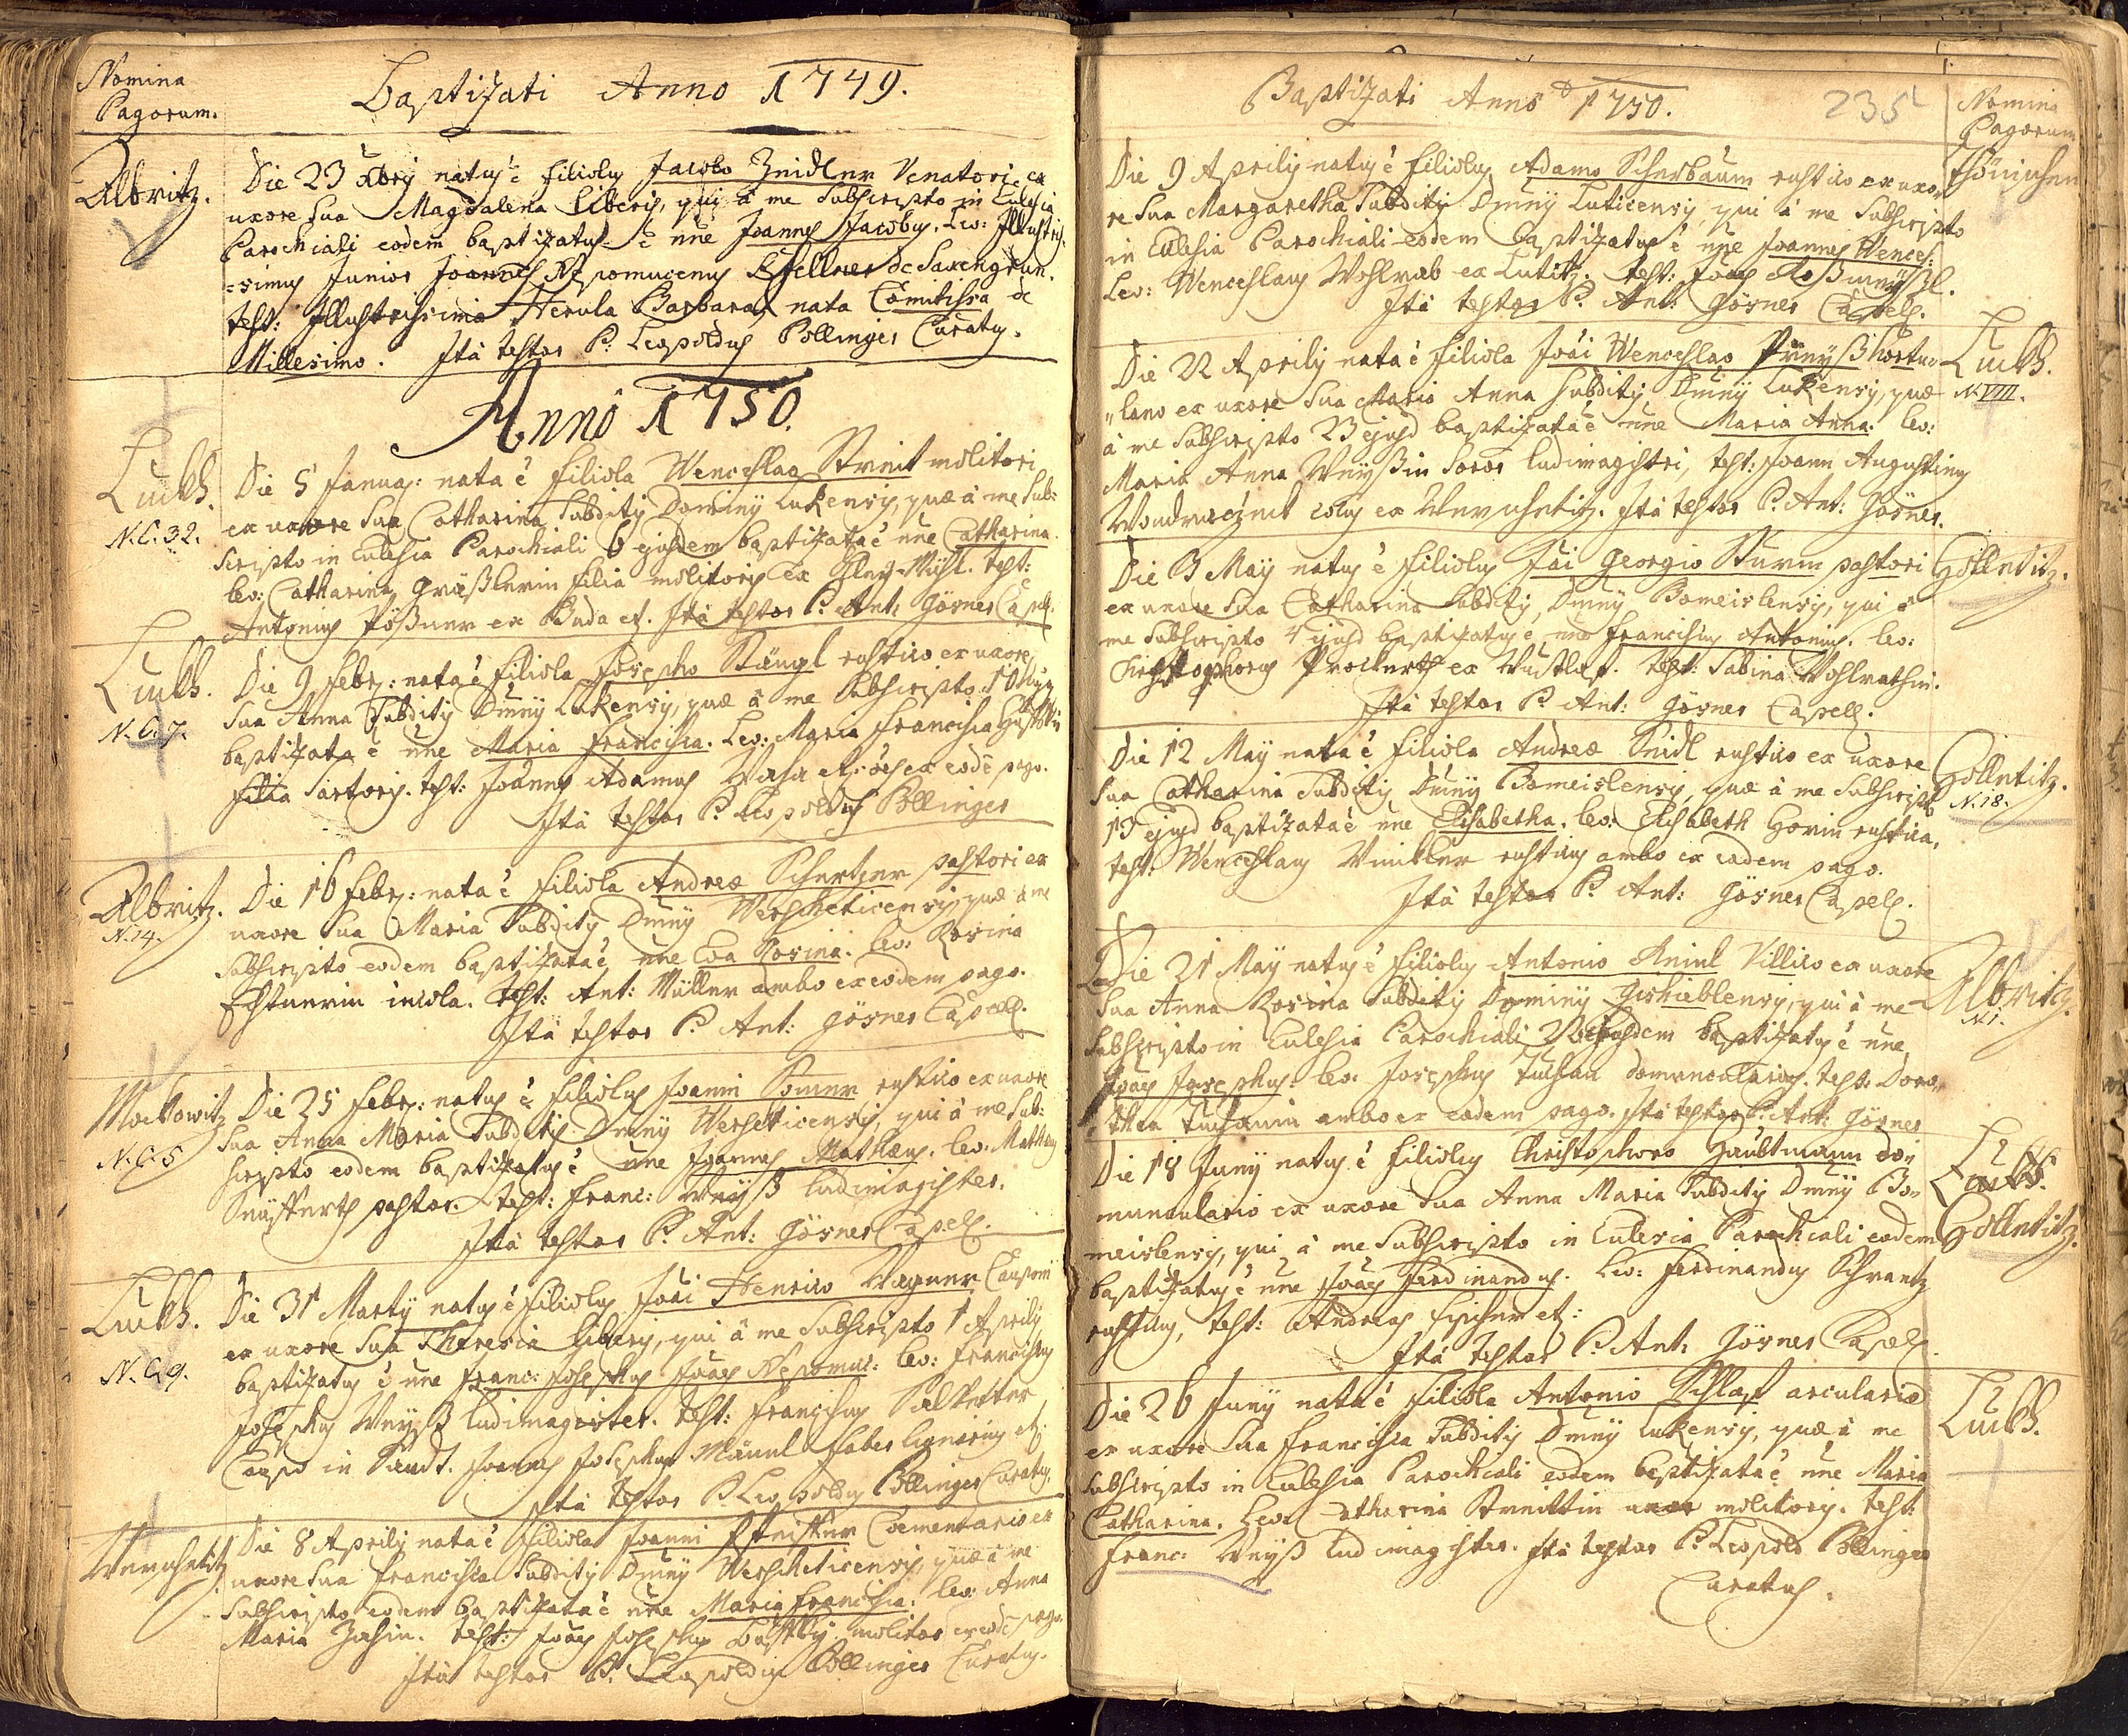 Nomina
Pagorum.
Baptizati Anno 1749.
Albritz.
Die 23 Xbrij natus ẽ filiolus Jacobo Zeidler Venatori ex
uxore sua Magdalena liberis, qui à me subscripto in Eclesia
Parochiali eodem baptizatus ẽ nñe Joannes Jacobus. Lev: Illustris-
=simus Junior Joannes Nepomucenus Gfellner de Saxengrun.
test: Illustrissima Herula Barbara nata Comitissa de
Millesimo. Ità testor P. Leopoldus Pöllinger Curatus.
Anno 1750.
Luck.
N.C. 32.
Die 5 Januar: nata ẽ filiola Wenceslao Streit molitori
ex uxore sua Catharina subditis Dominij Lukensis, quæ à me sub:
scripto in Eclesia Parochiali 6 ejusdem baptizata ẽ nñe Catharina.
lev: Catharina filia molitoris ex test:
Antonius ex Buda et. Ità testor P. Ant: Görner Capell.
Luck.
N.C. 7.
Die 9 Febr: nata ẽ filiola Josepho Stängl rustico ex uxore
sua Anna subditis Dñnij Lukensis, quæ à me subscripto 10
baptizata ẽ nñe Maria Francisca. Lev: Maria Francisca
filia sartoris. test: Joannes Adamus ex eodẽ pago.
Ità testor P. Leopoldus Pöllinger
Albritz.
N. 14.
Die 16 Febr: nata ẽ filiola Andreæ pastori ex
uxore sua Maria subditis Dñnij Werscheticensis, quæ à me
subscripto eodem baptizata ẽ nñe Eva Rosina. lev: Rosina
incola. test: Ant: Müller ambo ex eodem pago.
Ità testor P. Ant: Görner Capell.
Mockowitz
N.C. 5
Die 25 Febr: natus ẽ filiolus Joanni rustico ex uxore
sua Anna Maria subditis Dñnij Wersheticensis, qui à me sub:
scripto eodem baptizatus ẽ nñe Joannes Mathæus. lev: Mathæus
pastor. test: Franc: Weÿß ludimagister.
Ità testor P. Ant: Görner Capell.
Luck.
N.C. 9.
Die 31 Martij natus ẽ filiolus Joãi Henrico Wagner Cauponi
ex uxore sua Theresia liberis, qui à me subscripto 1 Aprilis
baptizatus ẽ nñe Franc: Josephus Joães Nepomuc: lev: Franciscus
Josephus Weÿß ludimagister. test: Franciscus
Caupo in Joannes Josephus Männl faber lignarius et
Ità testor P. Leopoldus Pöllinger Curatus
Werschetitz
Die 8 Aprilis nata ẽ filiola Joanni Pfeiffer Coementario ex
uxore sua Francisca subditis Dñnij Werscheticensis, quæ à me
subscripto eodem baptizata ẽ nñe Maria Francisca. lev: Anna
Maria test: Joães Josephus molitor ex eodẽ pago.
Ità testor P. Leopoldus Pöllinger Curatus.
Baptizati Anno 1750.
235
Nomina
Pagorum
Die 9 Aprilis natus ẽ filiolus Adamo Scherbaum rustico ex uxo-
re sua Margaretha subditis Dñnij Luticensis, qui à me subscripto
in Eclesia Parochiali eodem baptizatus ẽ nñe Joannes Wences:
Lev: Wenceslaus Wohlrab ex Lutitz. test: Joães
Ità testor P. Ant: Görner Capell.
Luck.
N. VIII.
Die 22 Aprilis nata ẽ filiola Joãi Wenceslao hortu-
lano ex uxore sua Maria Anna subditis Dñnij Lukensis, quæ
à me subscripto 23 ejusd baptizata ẽ nñe Maria Anna. lev:
Maria Anna Weÿßin soror ludimagistri, test: Joann Augustinus
ex Werschetitz. Ità testor P. Ant: Görner.
Göllntitz.
Die 3 Maij natus ẽ filiolus Joãi Georgio Sturm pastori
ex uxore sua Catharina subditis Dñnij Bomeislensis, qui à
me subscripto 4 ejusd baptizatus ẽ nñe Franciscus Antonius. lev:
Christophorus ex test: Sabina Wohlrathin.
Ità testor P. Ant: Görner Capell.
Göllntitz.
N. 18.
Die 12 Maij nata ẽ filiola Andreæ Seidl rustico ex uxore
sua Catharina subditis Dñnij Bomeislensis, quæ à me subscripto
13 ejusd baptizata ẽ nñe Elisabetha. lev: Elisabeth rustica,
test: Wenceslaus Winkler rusticus ambo ex eodem pago.
Ità testor P. Ant: Görner Capell.
Albritz.
N. 1.
Die 21 Maij natus ẽ filiolus Antonio Villico ex uxore
sua Anna Rosina subditis Dominij Gishieblensis, qui à me
subscripto in Eclesia Parochiali 22 ejusdem baptizatus ẽ nñe
Joães Josephus. lev: Josephus domuncularius. test: Doro-
thea ambo ex eodem pago. Ità testor P. Ant: Görner
Luck.
Göllntitz.
Die 18 Junij natus ẽ filiolus Christophoro Haubtmann do-
munculario ex uxore sua Anna Maria subditis Dñnij Bo-
meislensis, qui à me subscripto in Eclesia Parochiali eodem
baptizatus ẽ nñe Joães Ferdinandus. Lev: Ferdinandus Schrantz
rusticus, test: Andreas Fischer et:
Ità testor P. Ant: Görner Capell.
Luck.
Die 26 Junij nata ẽ filiola Antonio Schlaf arculario
ex uxore sua Francisca subditis Dñnij Lukensis, quæ à me
subscripto in Eclesia Parochiali eodem baptizata ẽ nñe Maria
Catharina. Lev: Catharina Streittin uxor molitoris. test:
Franc: Weÿß ludimagister. Ità testor P. Leopold Pöllinger
Curatus.